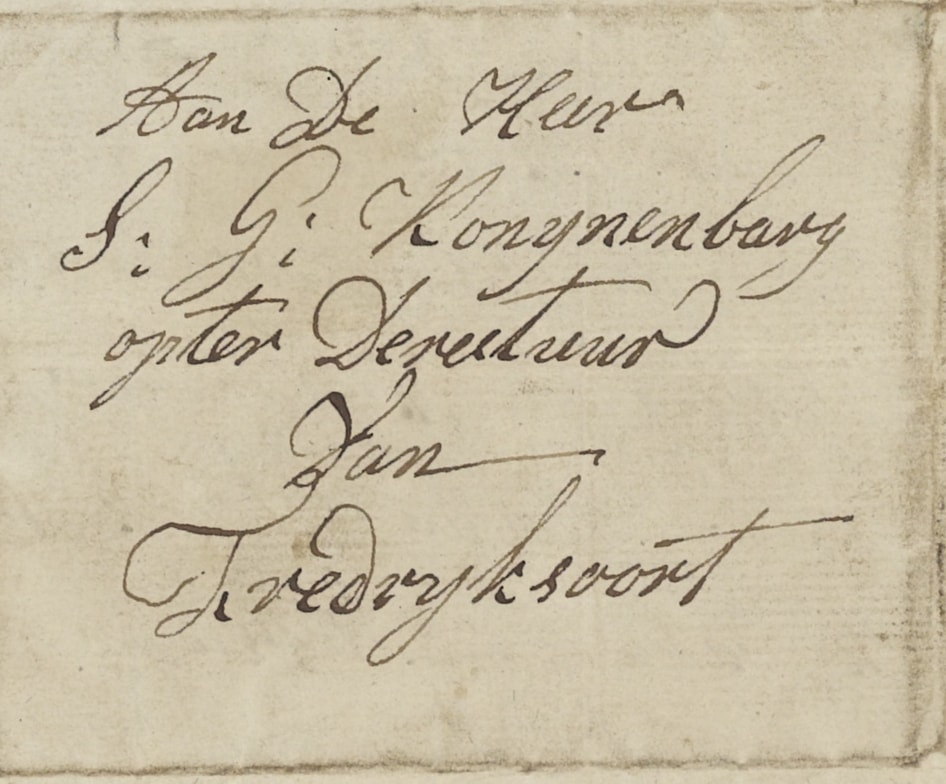 Aan De Heer
S: G: Konynenbarg
opter Derectuur
Van
Fredryksoort